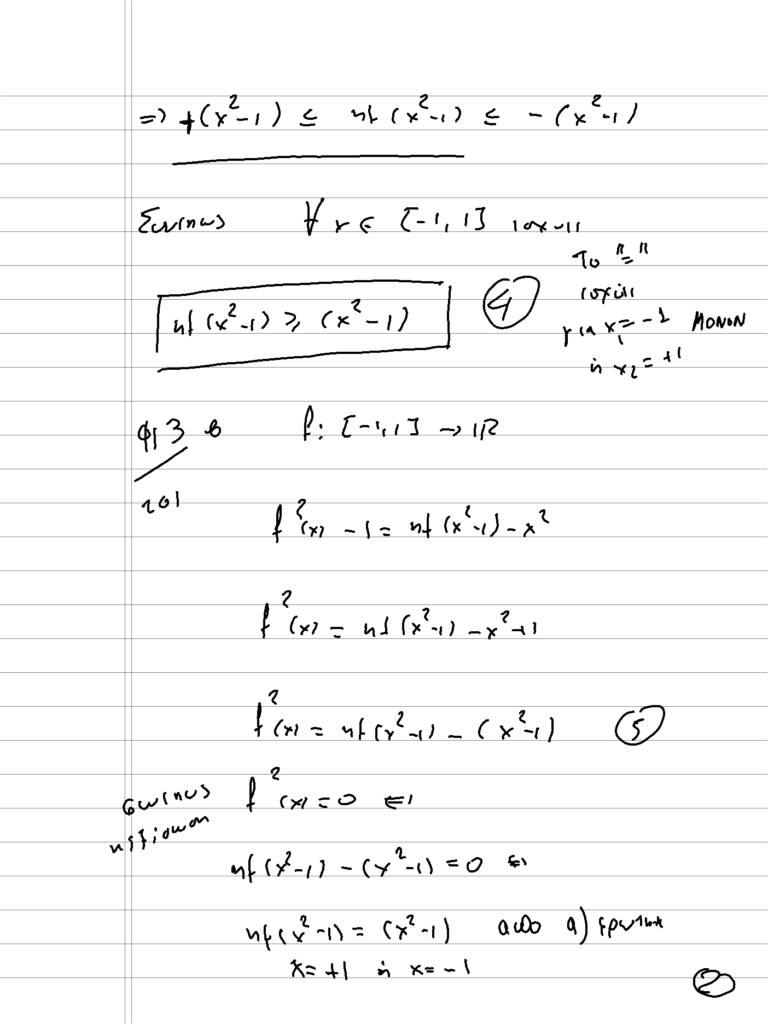 => +(x²-1) ≤ ημ(x²-1) ≤ -(x²-1)
Συνεπως ∀ x ∈ [-1,1] ισχυει
ημ(x²-1) ≥ (x²-1) ④
Το "="
ισχύει
για x₁=-1 ΜΟΝΟΝ
ή x₂=+1
φ 3 β f: [-1,1] → ℝ
201
f²(x) - 1 = ημ(x²-1) - x²
f²(x) = ημ(x²-1) - x²+1
f²(x) = ημ(x²-1) - (x²-1) ⑤
συνεπως f²(x) = 0 ⇔
ημ(x²-1) - (x²-1) = 0 ⇔
ημ(x²-1) = (x²-1) από α) ερωτημα
x = +1 ή x = -1
②